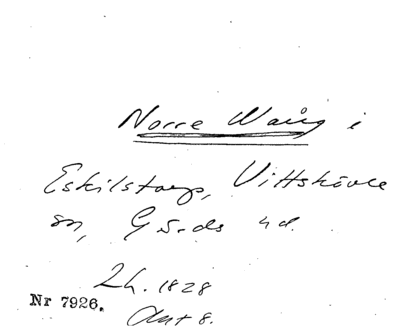 Norre Wång i
Eskilstorp, Vittskövle
sn, Gärds hd.
Lh. 1828
Nr 7926.
Akt 8.